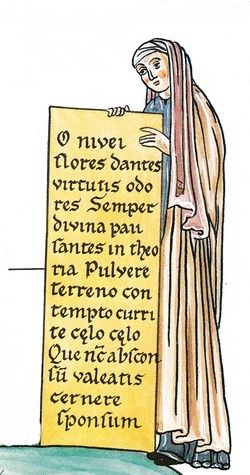 O nivei
flores dantes
virtutis odo
res Semper
divina pau
santes in theo
ria Pulvere
terreno con
tempto curri
te cęlo cęlo
Que nc̄ abscon
sū valeatis
cernere
sponsum